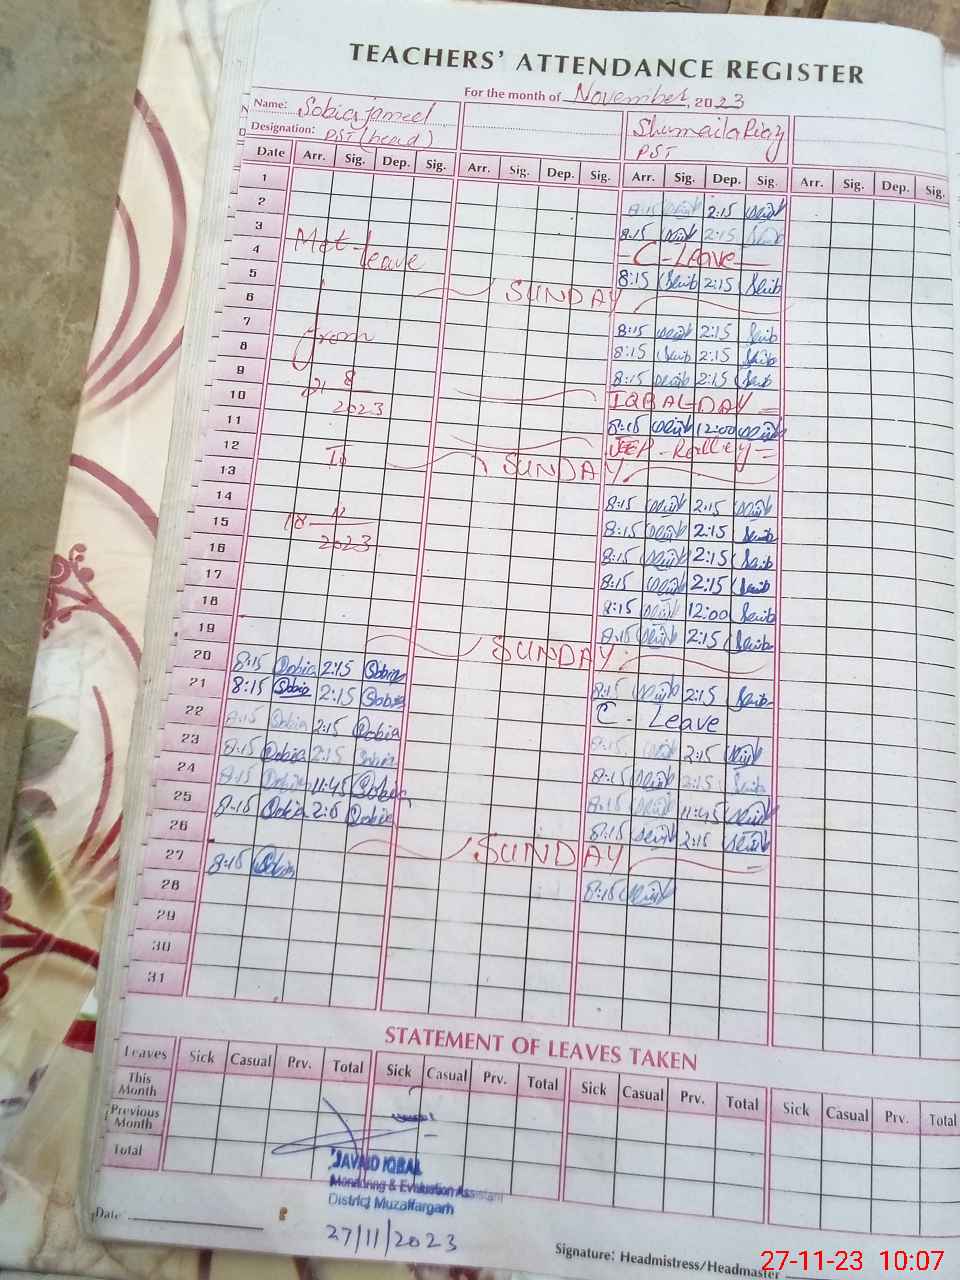 TEACHERS' ATTENDANCE REGISTER
For the month of November, 2023
Name: Sobia jameel
Shumaila Riaz
Designation: PST (head)
PST
Date Arr. Sig. Dep. Sig. Arr. Sig. Dep. Sig. Arr. Sig. Dep. Sig. Arr. Sig. Dep. Sig.
1
2 8:15 2:15
3 8:15 2:15
4 Mat-leave C-Leave
5 8:15 2:15
6 SUNDAY
7 8:15 2:15
8 from 8:15 2:15
9 8:15 2:15
10 21 8 2023 IQBAL-DAY
11 8:15 12:00
12 To JEEP-Ralley
13 SUNDAY
14 8:15 2:15
15 18 11 2023 8:15 2:15
16 8:15 2:15
17 8:15 2:15
18 8:15 12:00
19 8:15 2:15
SUNDAY
20 8:15 Sobia 2:15 Sobia
21 8:15 Sobia 2:15 Sobia 8:15 2:15
22 8:15 Sobia 2:15 Sobia C-Leave
23 8:15 Sobia 2:15 Sobia 8:15 2:15
24 8:15 Sobia 11:45 Sobia 8:15 2:15
25 8:15 Sobia Sobia 8:15 11:45
26 8:15 2:15
SUNDAY
27 8:15 Sobia
28 8:15
29
30
31
STATEMENT OF LEAVES TAKEN
Leaves Sick Casual Prv. Total Sick Casual Prv. Total Sick Casual Prv. Total Sick Casual Prv. Total
This Month
Previous Month
Total
JAVAID IQBAL
Monitoring & Evaluation Assistant
District Muzaffargarh
27/11/2023
Date
Signature: Headmistress/Headmaster
27-11-23 10:07